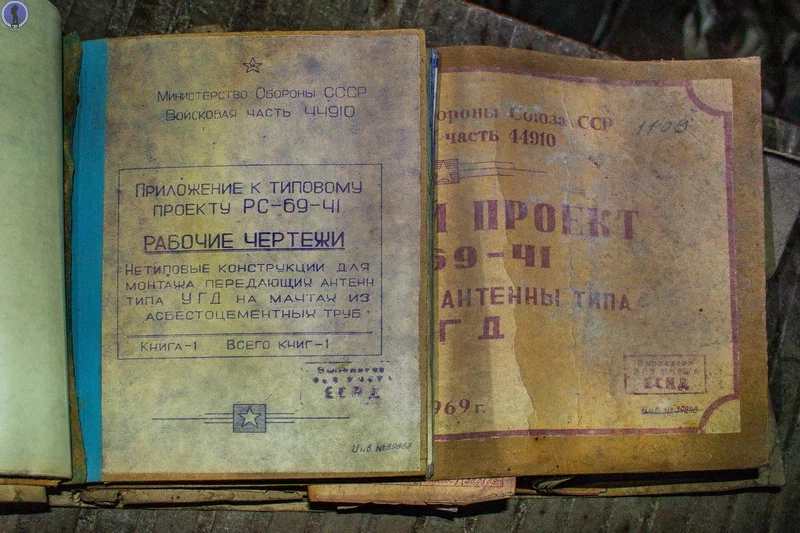 Министерство Обороны СССР
Войсковая часть 44910
Приложение к типовому
проекту РС-69-41
Рабочие чертежи
Нетиповые конструкции для
монтажа передающих антенн
типа УГД на мачтах из
асбестоцементных труб
Книга-1 Всего книг-1
Инв. №39862
ороны Союза ССР
часть 44910
1109
Й ПРОЕКТ
69-41
АНТЕННЫ ТИПА
ГД
969г.